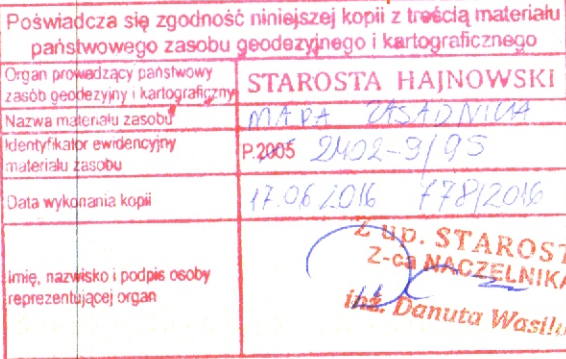 Poświadcza się zgodność niniejszej kopii z treścią materiału
państwowego zasobu geodezyjnego i kartograficznego
Organ prowadzący państwowy
zasób geodezyjny i kartograficzny
STAROSTA HAJNOWSKI
Nazwa materiału zasobu
MAPA ZASADNICZA
Identyfikator ewidencyjny
materiału zasobu
P.2005 2402-9/95
Data wykonania kopii
17.06.2016 778/2016
Imię, nazwisko i podpis osoby
reprezentującej organ
Z up. STAROST
Z-ca NACZELNIKA
inż. Danuta Wasilu